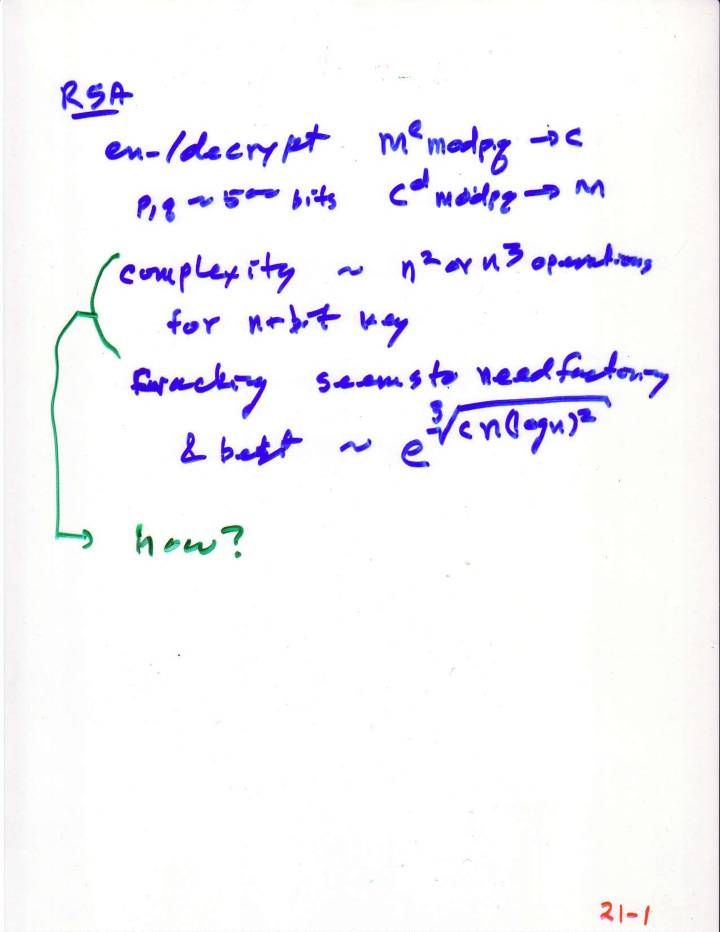 RSA
en-/decrypt m^e mod pq → c
p, q ~ 500 bits c^d mod pq → m
complexity ~ n² or n³ operations
for n-bit key
cracking seems to need factoring
& best ~ e^∛(c n (log n)²)
how?
21-1